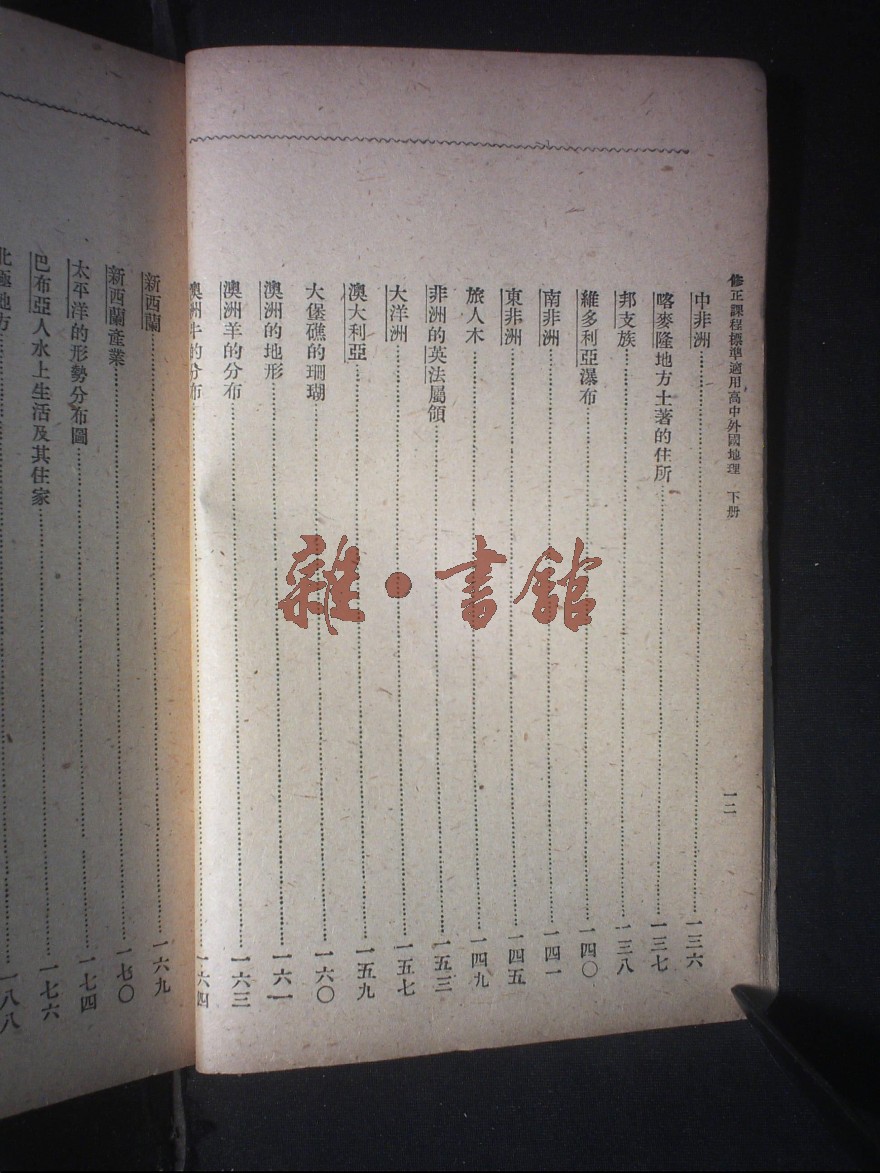 修正課程標準適用高中外國地理　下册
一二
中非洲……一三六
喀麥隆地方土著的住所……一三七
邦支族……一三八
維多利亞瀑布……一四〇
南非洲……一四一
東非洲……一四五
旅人木……一四九
非洲的英法屬領……一五三
大洋洲……一五七
澳大利亞……一五九
大堡礁的珊瑚……一六〇
澳洲的地形……一六一
澳洲羊的分布……一六三
澳洲牛的分布……一六四
新西蘭……一六九
新西蘭產業……一七〇
太平洋的形勢分布圖……一七四
巴布亞人水上生活及其住家……一七六
北極地方……一八八
雜·書館